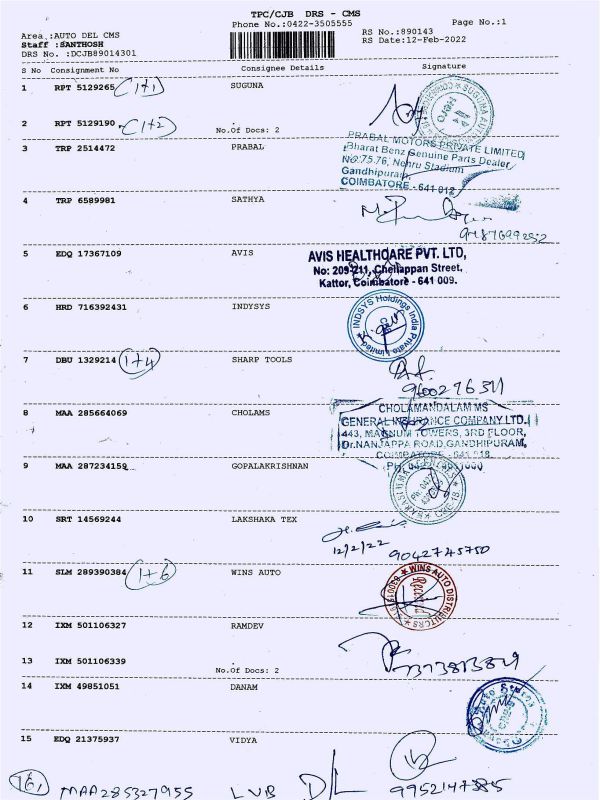 TPC/CJB DRS - CMS
Phone No.:0422-3505555
Page No.:1
Area :AUTO DEL CMS
RS No.:890143
Staff :SANTHOSH
RS Date:12-Feb-2022
DRS No. :DCJB89014301
S No Consignment No Consignee Details Signature
1 RPT 5129265 (1+1) SUGUNA
2 RPT 5129190 (1+2) No.Of Docs: 2
PRABAL MOTORS PRIVATE LIMITED
3 TRP 2514472 PRABAL
Bharat Benz Genuine Parts Dealer
No:75,76, Nehru Stadium
Gandhipuram,
COIMBATORE - 641 012
4 TRP 6589981 SATHYA
5 EDQ 17367109 AVIS
AVIS HEALTHCARE PVT. LTD,
No: 209-211, Chellappan Street,
Kattor, Coimbatore - 641 009.
6 HRD 716392431 INDYSYS
INDSYS Holdings India Private Limited
7 DBU 1329214 (1+4) SHARP TOOLS
9600276311
8 MAA 285664069 CHOLAMS
CHOLAMANDALAM MS
GENERAL INSURANCE COMPANY LTD.
443, MAGNUM TOWERS, 3RD FLOOR,
Dr.NANJAPPA ROAD,GANDHIPURAM,
COIMBATORE - 641 018
9 MAA 287234159 GOPALAKRISHNAN
10 SRT 14569244 LAKSHAKA TEX
12/2/22 9042745750
11 SLM 289390384 (1+6) WINS AUTO
WINS AUTO DISTRIBUTORS
12 IXM 501106327 RAMDEV
13 IXM 501106339 No.Of Docs: 2
14 IXM 49851051 DANAM
15 EDQ 21375937 VIDYA
16, MAA285327955 LVB D/L 9952147385